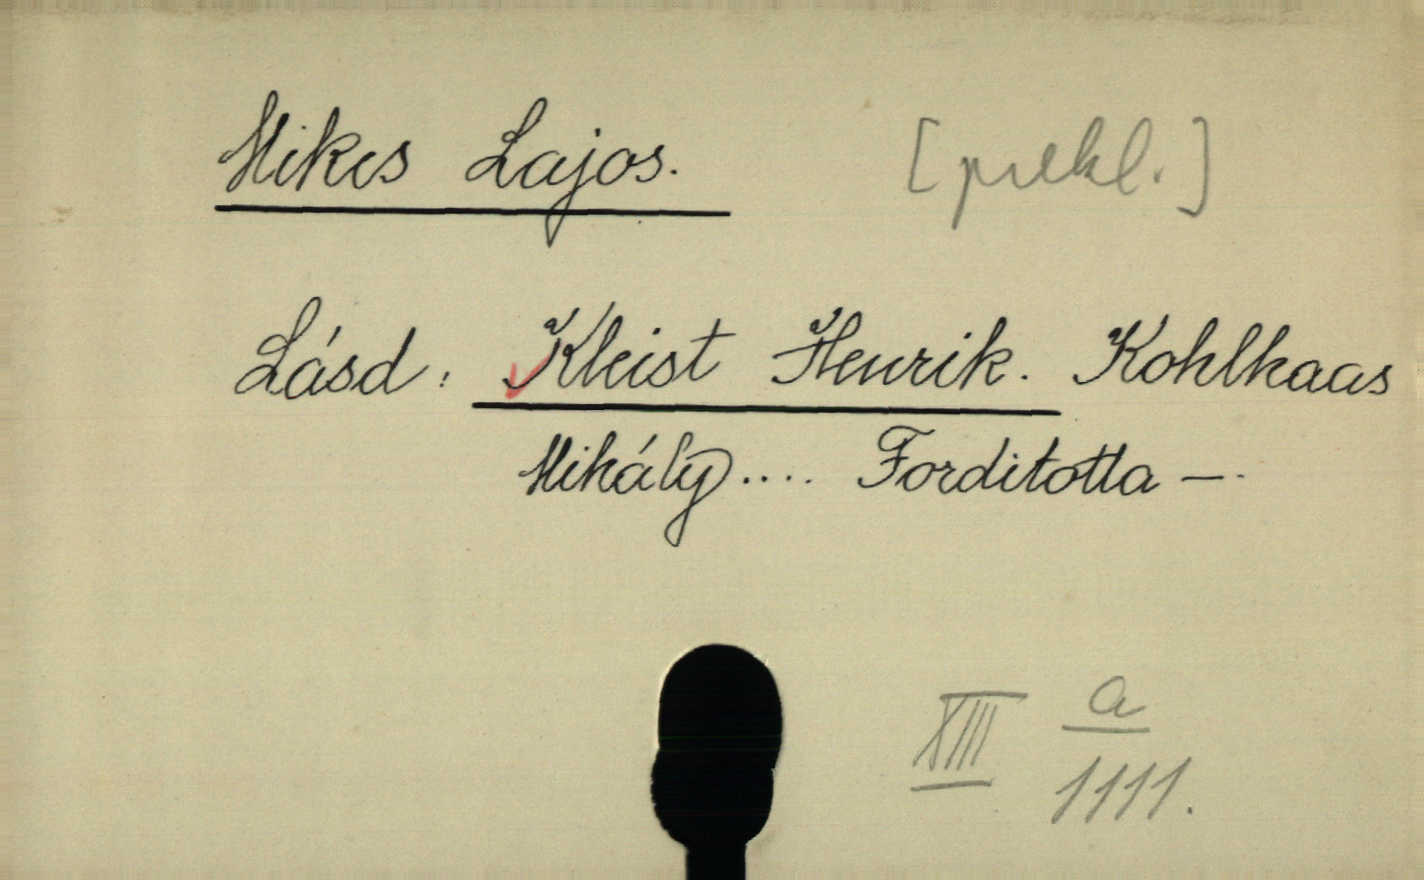 Mikes Lajos. [prekl.]
Lásd: Kleist Henrik. Kohlhaas
Mihály.... Forditotta —.
XIII a
1111.